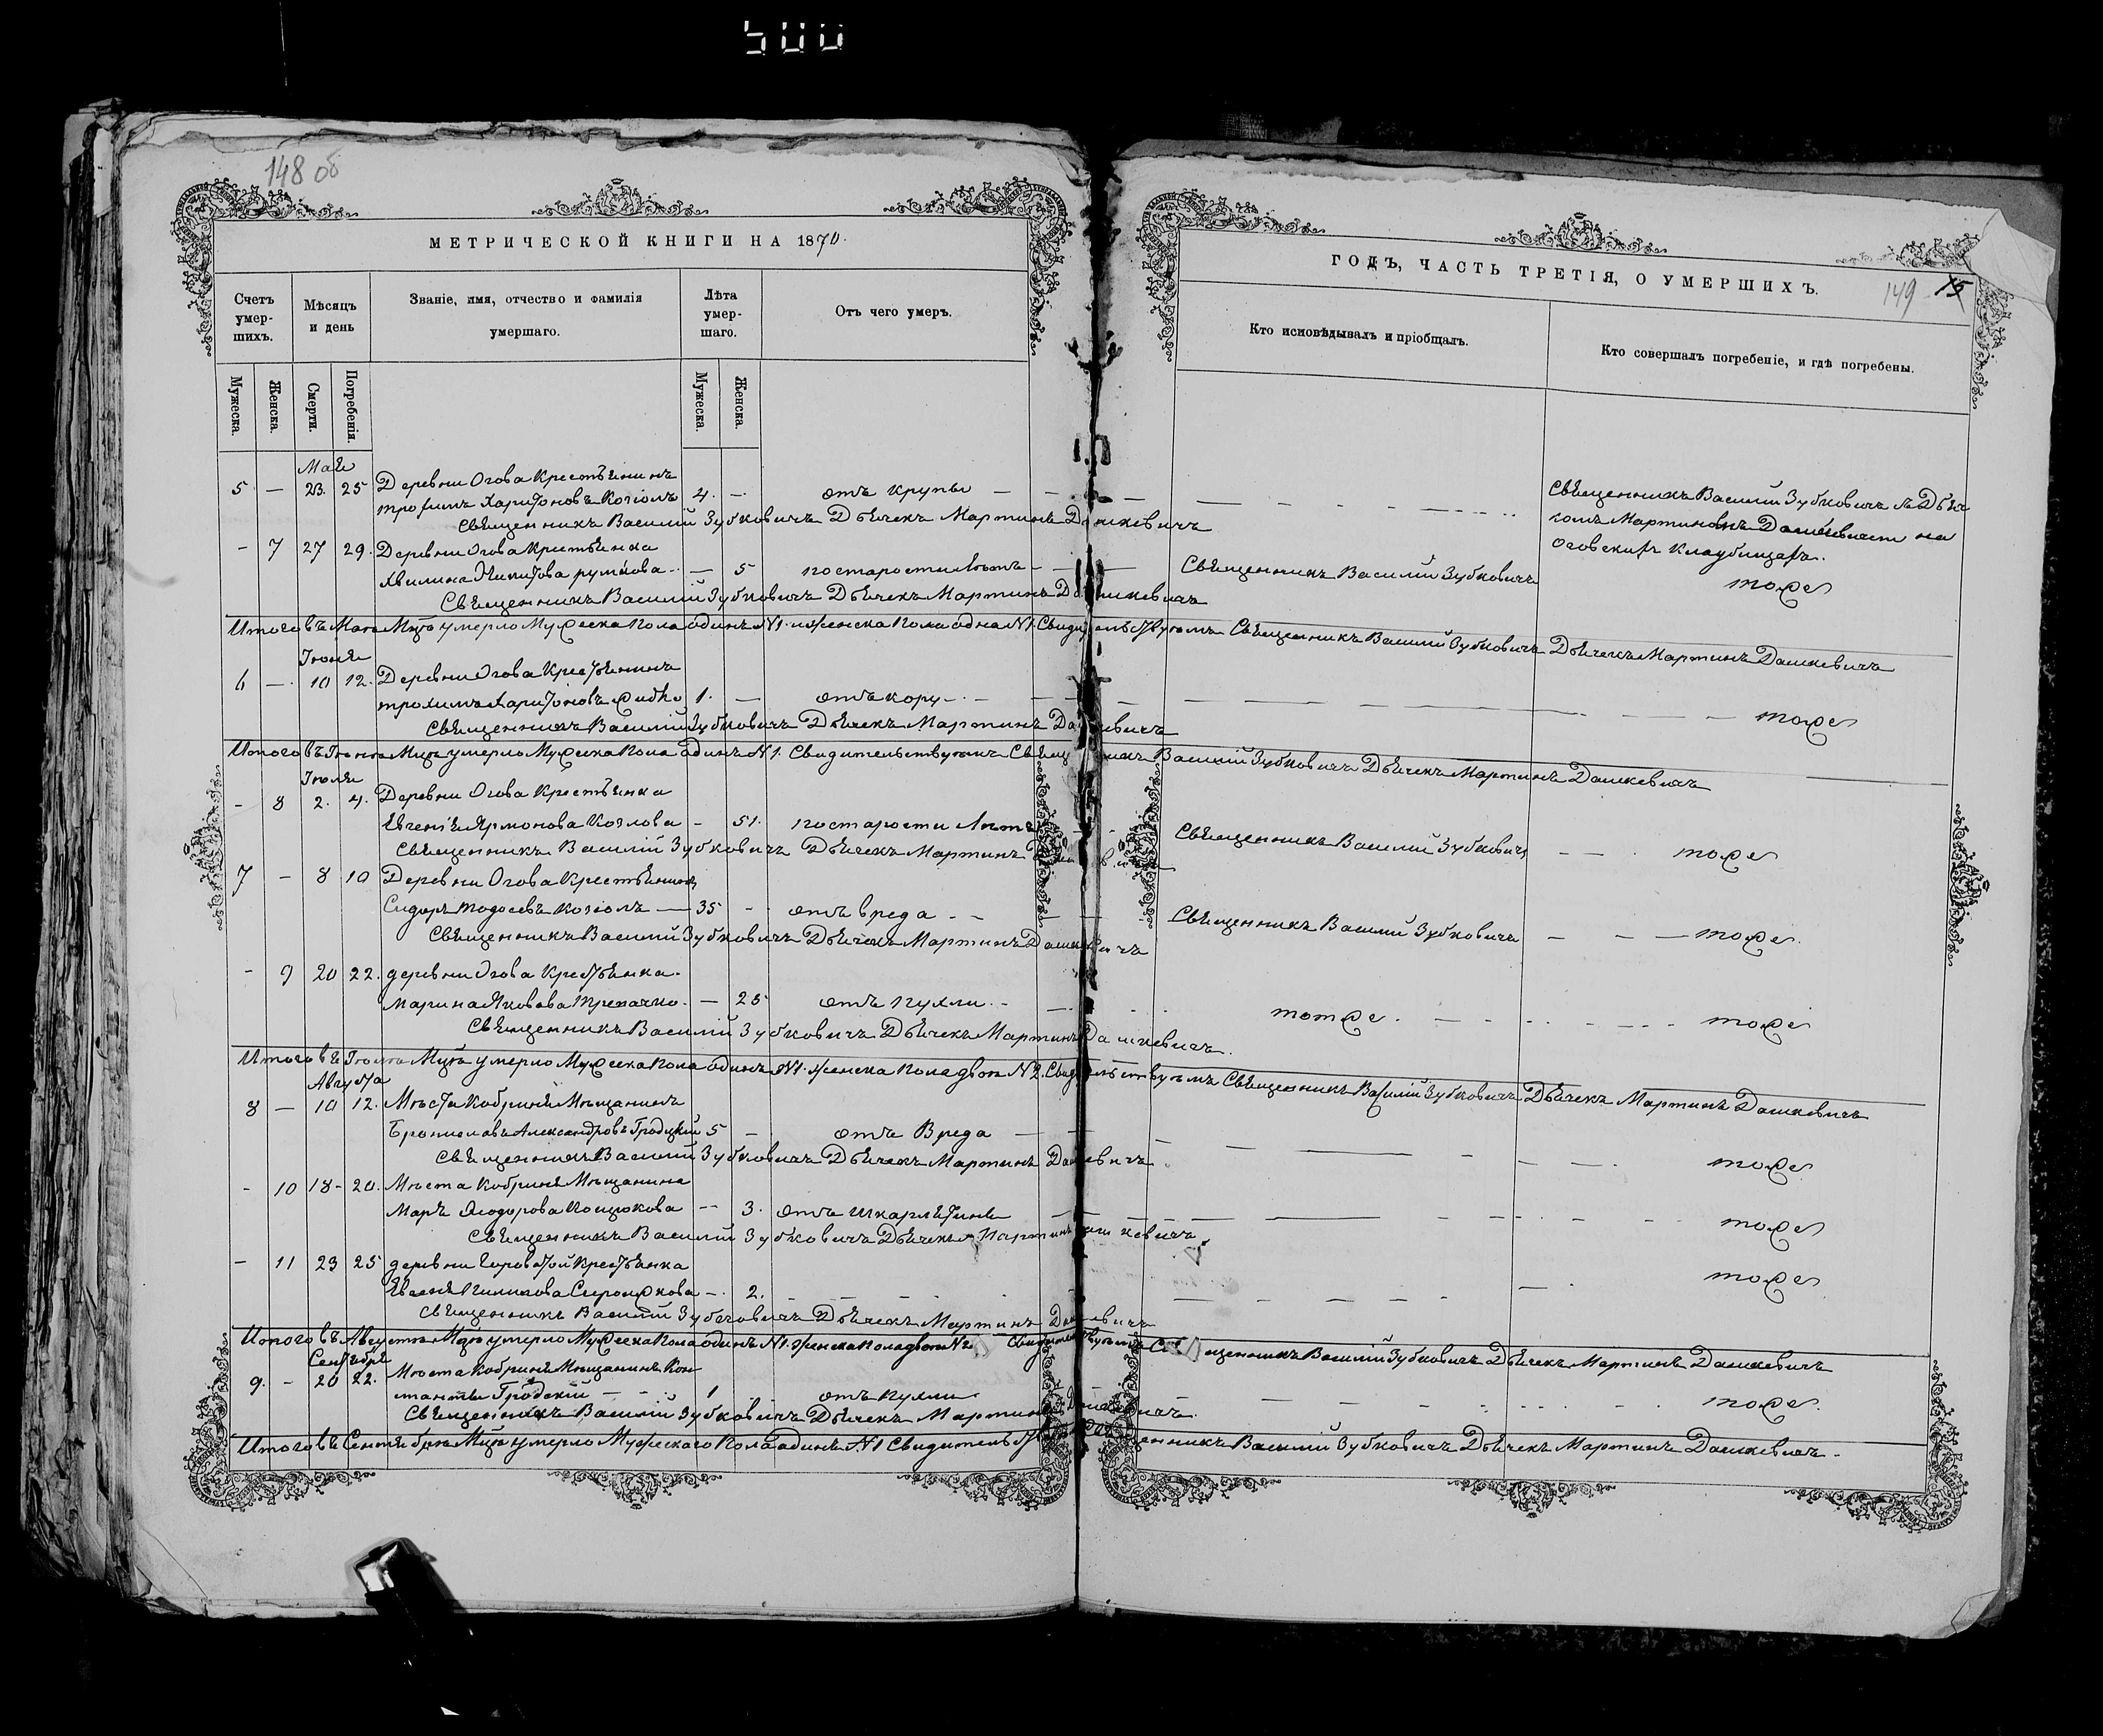 500
148 об
МЕТРИЧЕСКОЙ КНИГИ НА 1870.
Счетъ умер-шихъ.
Мѣсяцъ и день
Званіе, имя, отчество и фамилія умершаго.
Лѣта умер-шаго.
Отъ чего умеръ.
Мужеска.
Женска.
Смерти.
Погребенія.
Мужеска.
Женска.
Мая
5 — 23. 25 Деревни Огова Крестьянинъ
трофимъ Харитоновъ Козіолъ 4. — отъ крупы
Священникъ Василій Зубковичъ Дьячекъ Мартинъ Дашкевичъ
— 7 27 29. Деревни Огова Крестьянка
Никитова — 5 по старости лѣтъ
Священникъ Василій Зубковичъ Дьячекъ Мартинъ Дашкевичъ
Итого въ Маѣ Мцѣ умерло Мужеска пола одинъ №1. и женска пола одна №1. Свидѣтельствуемъ Священникъ Василій Зубковичъ Дьячекъ Мартинъ Дашкевичъ
Іюня
6 — 10 12. Деревни Огова Крестьянинъ
трохимъ Харитоновъ 1. — отъ кору
Священникъ Василій Зубковичъ Дьячекъ Мартинъ Дашкевичъ
Итого въ Іюнѣ Мцѣ умерло Мужеска пола одинъ №1. Свидительствуемъ Священникъ Василій Зубковичъ Дьячекъ Мартинъ Дашкевичъ
Іюля
— 8 2. 4. Деревни Огова Крестьянка
Евгенія Ярмонова Козлова — 51. по старости лѣтъ
Священникъ Василій Зубковичъ Дьячекъ Мартинъ Дашкевичъ
7 — 8 10 Деревни Огова Крестьянинъ
Сидоръ тодосевъ Козіолъ — 35 — отъ вреда
Священникъ Василій Зубковичъ Дьячекъ Мартинъ Дашкевичъ
— 9 20 22. деревни Огова Крестьянка
Марина Яковова — 25 отъ пухли
Священникъ Василій Зубковичъ Дьячекъ Мартинъ Дашкевичъ.
Итого въ Іюлѣ Мцѣ умерло Мужеска пола одинъ №1. женска пола двѣ №2. Свидѣтельствуемъ Священникъ Василій Зубковичъ Дьячекъ Мартинъ Дашкевичъ
Августа
8 — 10 12. Мѣста Кобриня Мѣщанинъ
Брониславъ Александровъ Гродзкій 5 — отъ Вреда
Священникъ Василій Зубковичъ Дьячекъ Мартинъ Дашкевичъ
— 10 18 20. Мѣста Кобриня Мѣщанина
Маря Ѳіодорова — 3. отъ шкарлятины
Священникъ Василій Зубковичъ Дьячекъ Мартинъ Дашкевичъ.
— 11 23 25 деревни Крестьянка
— 2.
Священникъ Василій Зубковичъ Дьячекъ Мартинъ Дашкевичъ
Итого въ Августѣ Мцѣ умерло Мужеска пола одинъ №1. Женска пола двѣ №2 Свидѣтельствуемъ Священникъ Василій Зубковичъ Дьячекъ Мартинъ Дашкевичъ
Сентября
9. — 20 22. Мѣста Кобриня Мѣщанинъ Кон
станты Гродскій 1 отъ пухли
Священникъ Василій Зубковичъ Дьячекъ Мартинъ Дашкевичъ.
Итого въ Сентябрѣ Мцѣ умерло Мужескаго пола одинъ №1 Свидительствуемъ Священникъ Василій Зубковичъ Дьячекъ Мартинъ Дашкевичъ
ГОДЪ, ЧАСТЬ ТРЕТІЯ, О УМЕРШИХЪ.
149 15
Кто исповѣдывалъ и пріобщалъ.
Кто совершалъ погребеніе, и гдѣ погребены.
Священникъ Василій Зубковичъ съ Дьяч
комъ Мартиномъ Дашкевичемъ на
Оговскихъ Кладбищахъ.
Священникъ Василій Зубковичъ тоже
тоже
Священникъ Василій Зубковичъ тоже
Священникъ Василій Зубковичъ тоже.
тотже. тоже
тоже
тоже
тоже
тоже